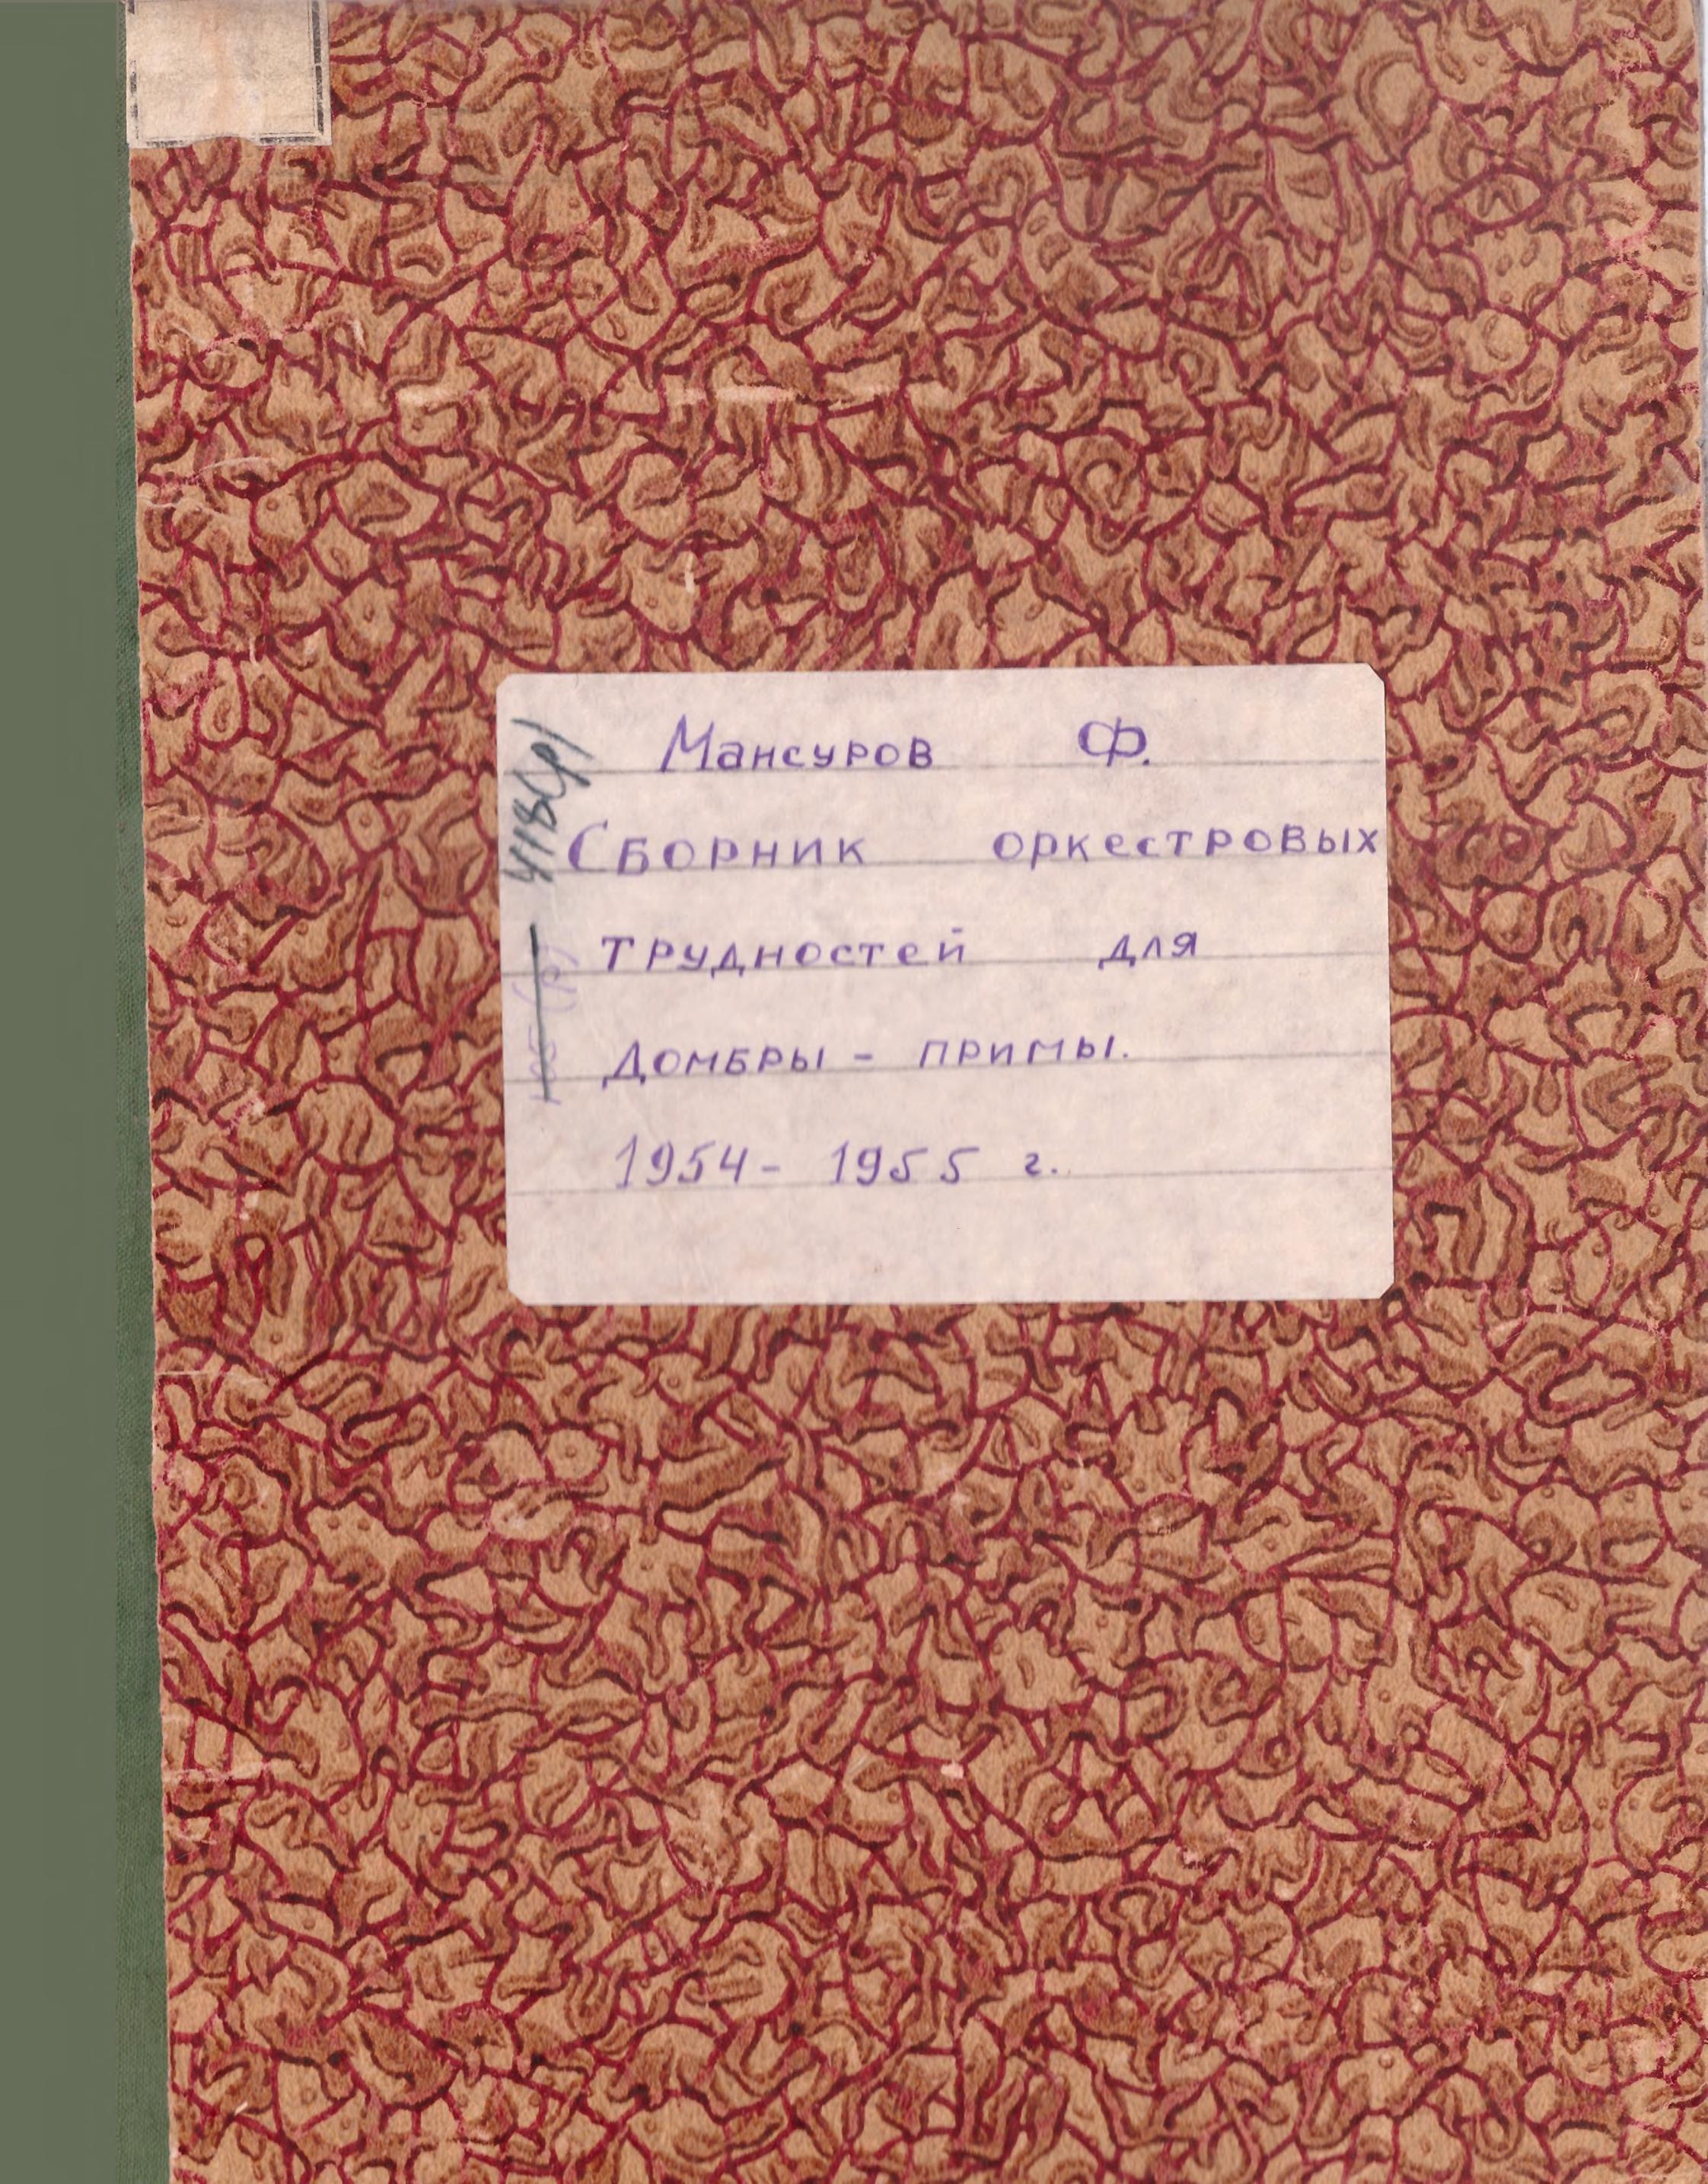 Мансуров Ф.
Сборник оркестровых
трудностей для
домбры - примы.
1954 - 1955 г.